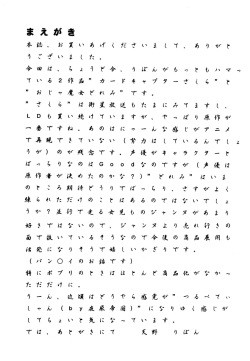 まえがき
本誌、お買いあげくださいまして、ありがと
うございました。
今回は、ちょうど今、りぽんがもっともハマっ
ている2作品"カードキャプターさくら"と
"おじゃ魔女どれみ"です。
"さくら"は衛星放送もたまにみてますし、
LDも買い続けていますが、やっぱり原作が
一番ですね。あのはにゃーんな感じがアニメ
で再現できていない(努力はしているんでしょ
うが)のが残念です。声優やキャラクターと
ぱっちりなのはGoodなのですが(声優は
原作者が決めたのかな?)"どれみ"はいま
のところ期待どうりでばっちり、さすがよく
練られただけのことはあるのではないでしょ
うか?並行で走る女児ものジャンルがあまり
好きでないので、ジャンスより売れ行きの
面で扱いているそうなので今後の商品展開も
活発になりそうで嬉しいかぎりです。
(バン○イのお話です)
特にポプリのときはほとんど商品化がなかっ
ただけに。
うーん、近頃はどうやら感覚が
してちょいと気になっています。
では、あとがきにて 天野 りぽん